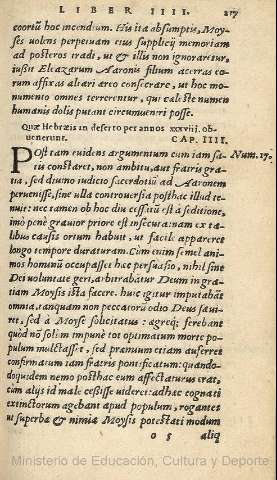 LIBER IIII. 217
cooriũ hoc incendium. His ita absumptis, Moy-
ses uolens perpetuam eius supplicij memoriam
ad posteros tradi, ut & illis non ignoraretur,
iussit Eleazarum Aaronis filium acerras eo-
rum affixas altari æreo consecrare, ut hoc mo-
numento omnes terrerentur, qui cæleste numen
humanis dolis putant circumueniri posse.
Quæ Hebræis in deserto per annos xxxviij. ob-
uenerunt. CAP. IIII.
POst tam euidens argumentum cum iam sa- Num.17.
tis constaret, non ambitu, aut fratris gra-
tia, sed diuino iudicio sacerdotiũ ad Aaronem
peruenisse, sine ulla controuersia posthac illud te-
nuit: nec tamen ob hoc diu cessatũ est à seditione,
imò penè grauior priore est insecuta: nam ex ta-
libus causis ortum habuit, ut facilè appareret
longo tempore duraturam. Cùm enim semel ani-
mos hominũ occupasset hæc persuasio, nihil sine
Dei uoluntate geri, arbitrabãtur Deum in gra-
tiam Moysis ista facere. huic igitur imputabãt
omnia, tanquam non peccatorũ odio Deus sæui-
ret, sed à Moyse solicitatus: ægreq; ferebant
quòd nõ solùm impunè tot optimatum morte po-
pulum mulctasset, sed præmium etiam auferret
confirmatum iam fratris pontificatum: quando-
doquidem nemo posthac eum affectaturus erat,
cùm alijs id malè cessisse uideret: ad hæc cognati
extinctorum agebant apud populum, rogantes
ut superbæ & nimiæ Moysis potestati modum
o 5 aliq
Ministerio de Educación, Cultura y Deporte